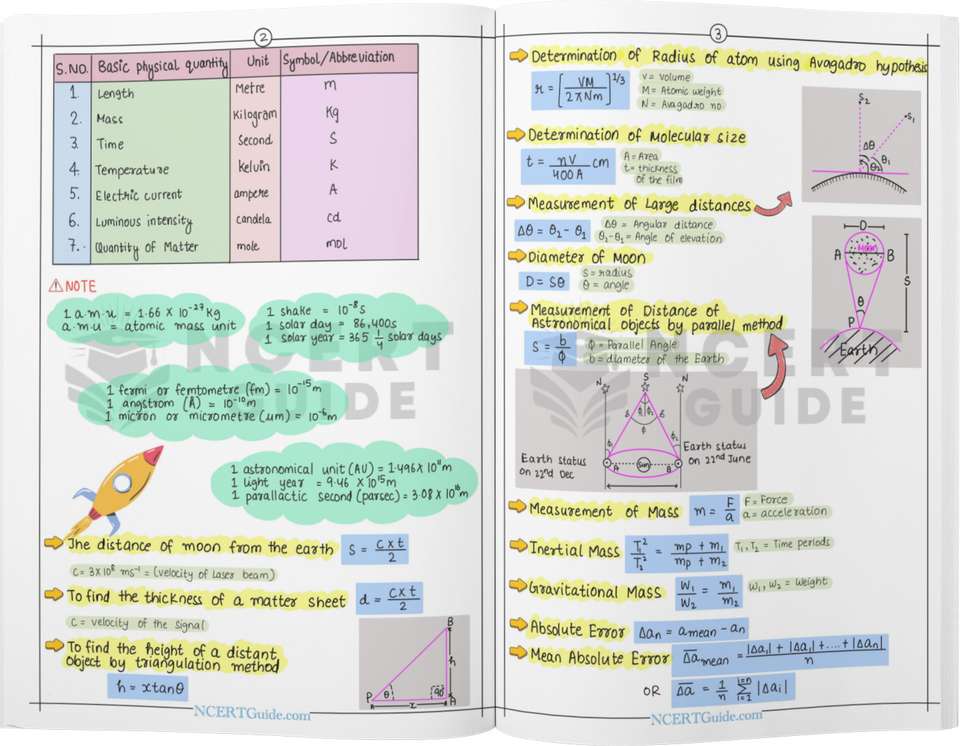 2
S.NO. Basic physical quantity Unit Symbol/Abbreviation
1. Length Metre m
2. Mass Kilogram Kg
3. Time Second S
4. Temperature kelvin K
5. Electric current ampere A
6. Luminous intensity candela cd
7. Quantity of Matter mole mol
NOTE
1 a.m.u = 1.66 X 10⁻²⁷ Kg
a.m.u = atomic mass unit
1 shake = 10⁻⁸ S
1 solar day = 86,400s
1 solar year = 365 1/4 solar days
1 fermi or femtometre (fm) = 10⁻¹⁵m
1 angstrom (Å) = 10⁻¹⁰m
1 micron or micrometre (μm) = 10⁻⁶m
1 astronomical unit (AU) = 1.496X 10¹¹m
1 light year = 9.46 X 10¹⁵m
1 parallactic second (parsec) = 3.08 X 10¹⁶m
The distance of moon from the earth S = c x t / 2
C = 3X10⁸ ms⁻¹ = (velocity of laser beam)
To find the thickness of a matter sheet d = c x t / 2
C = velocity of the signal
To find the height of a distant
object by triangulation method
h = x tanθ
B
h
P θ 90 A
x
NCERTGuide.com
3
Determination of Radius of atom using Avagadro hypothesis
r = [VM / 2πNm]^2/3
V = Volume
M = Atomic weight
N = Avagadro no.
Determination of Molecular size
t = nV / 400A cm
A = Area
t = thickness
of the film
S₂
S₁
Δθ
θ₁
θ₂
Measurement of Large distances
Δθ = θ₂ - θ₁
Δθ = Angular distance
θ₂-θ₁ = Angle of elevation
Diameter of Moon
D = Sθ
S = radius
θ = angle
D
A Moon B
S
θ
P
Earth
Measurement of Distance of
Astronomical objects by parallel method
S = b / ϕ
ϕ = Parallel Angle
b = diameter of the Earth
N S N
ϕ₁ ϕ₂
ϕ
A Sun B
Earth status
on 22nd Dec
Earth status
on 22nd June
Measurement of Mass m = F / a
F = Force
a = acceleration
Inertial Mass T₁² / T₂² = mp + m₁ / mp + m₂ T₁, T₂ = Time periods
Gravitational Mass W₁ / W₂ = m₁ / m₂ W₁, W₂ = Weight
Absolute Error Δan = amean - an
Mean Absolute Error Δa̅mean = |Δa₁| + |Δa₁| + .... + |Δan| / n
OR Δa̅ = 1/n Σ i=1 i=n |Δai|
NCERTGuide.com
NCERT
GUIDE
NCERT
GUIDE